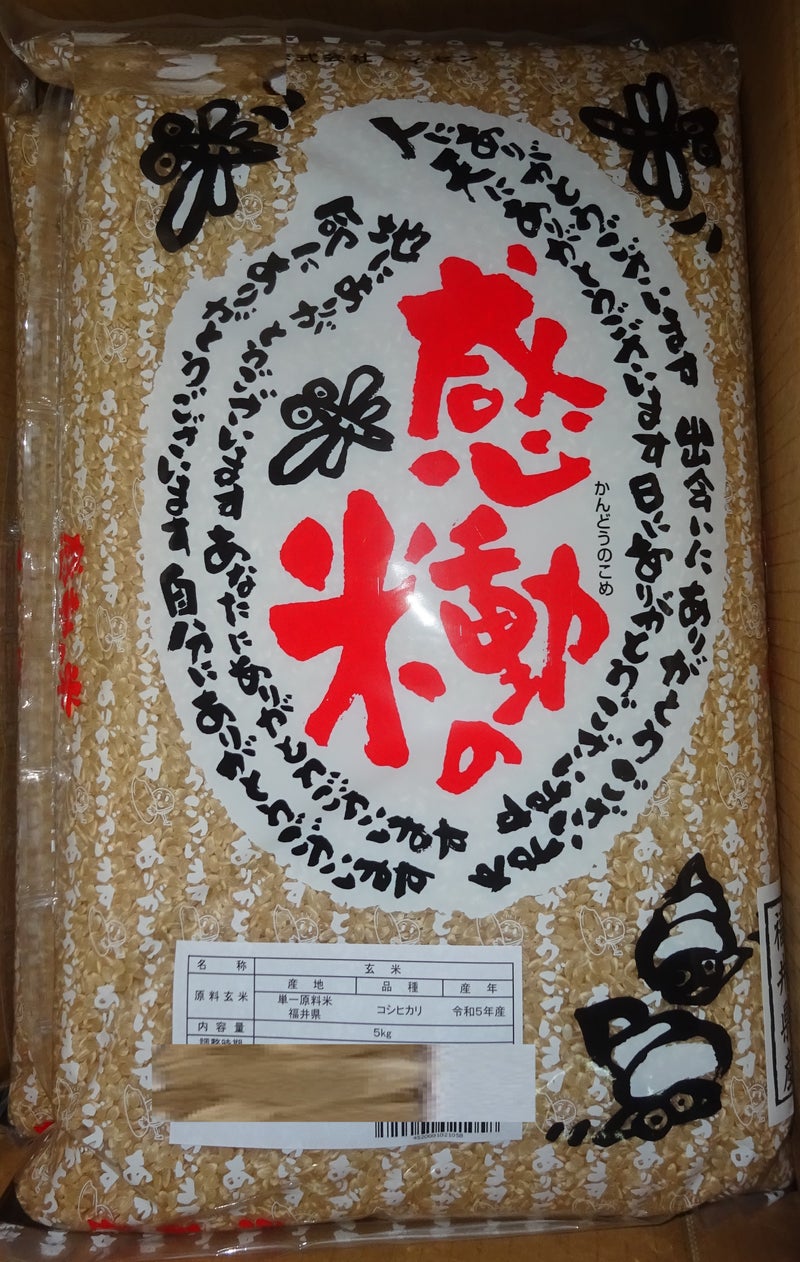 式会社
人にありがとうございます 出会いにありがとうございます
天にありがとうございます 日にありがとうございます
地にありがとうございます あなたにありがとうございます
命にありがとうございます 自分にありがとうございます
感動の
米
かんどうのこめ
ありがとうございます
福井県産
名称 玄米
原料玄米 産地 品種 産年
単一原料米 福井県 コシヒカリ 令和5年産
内容量 5kg